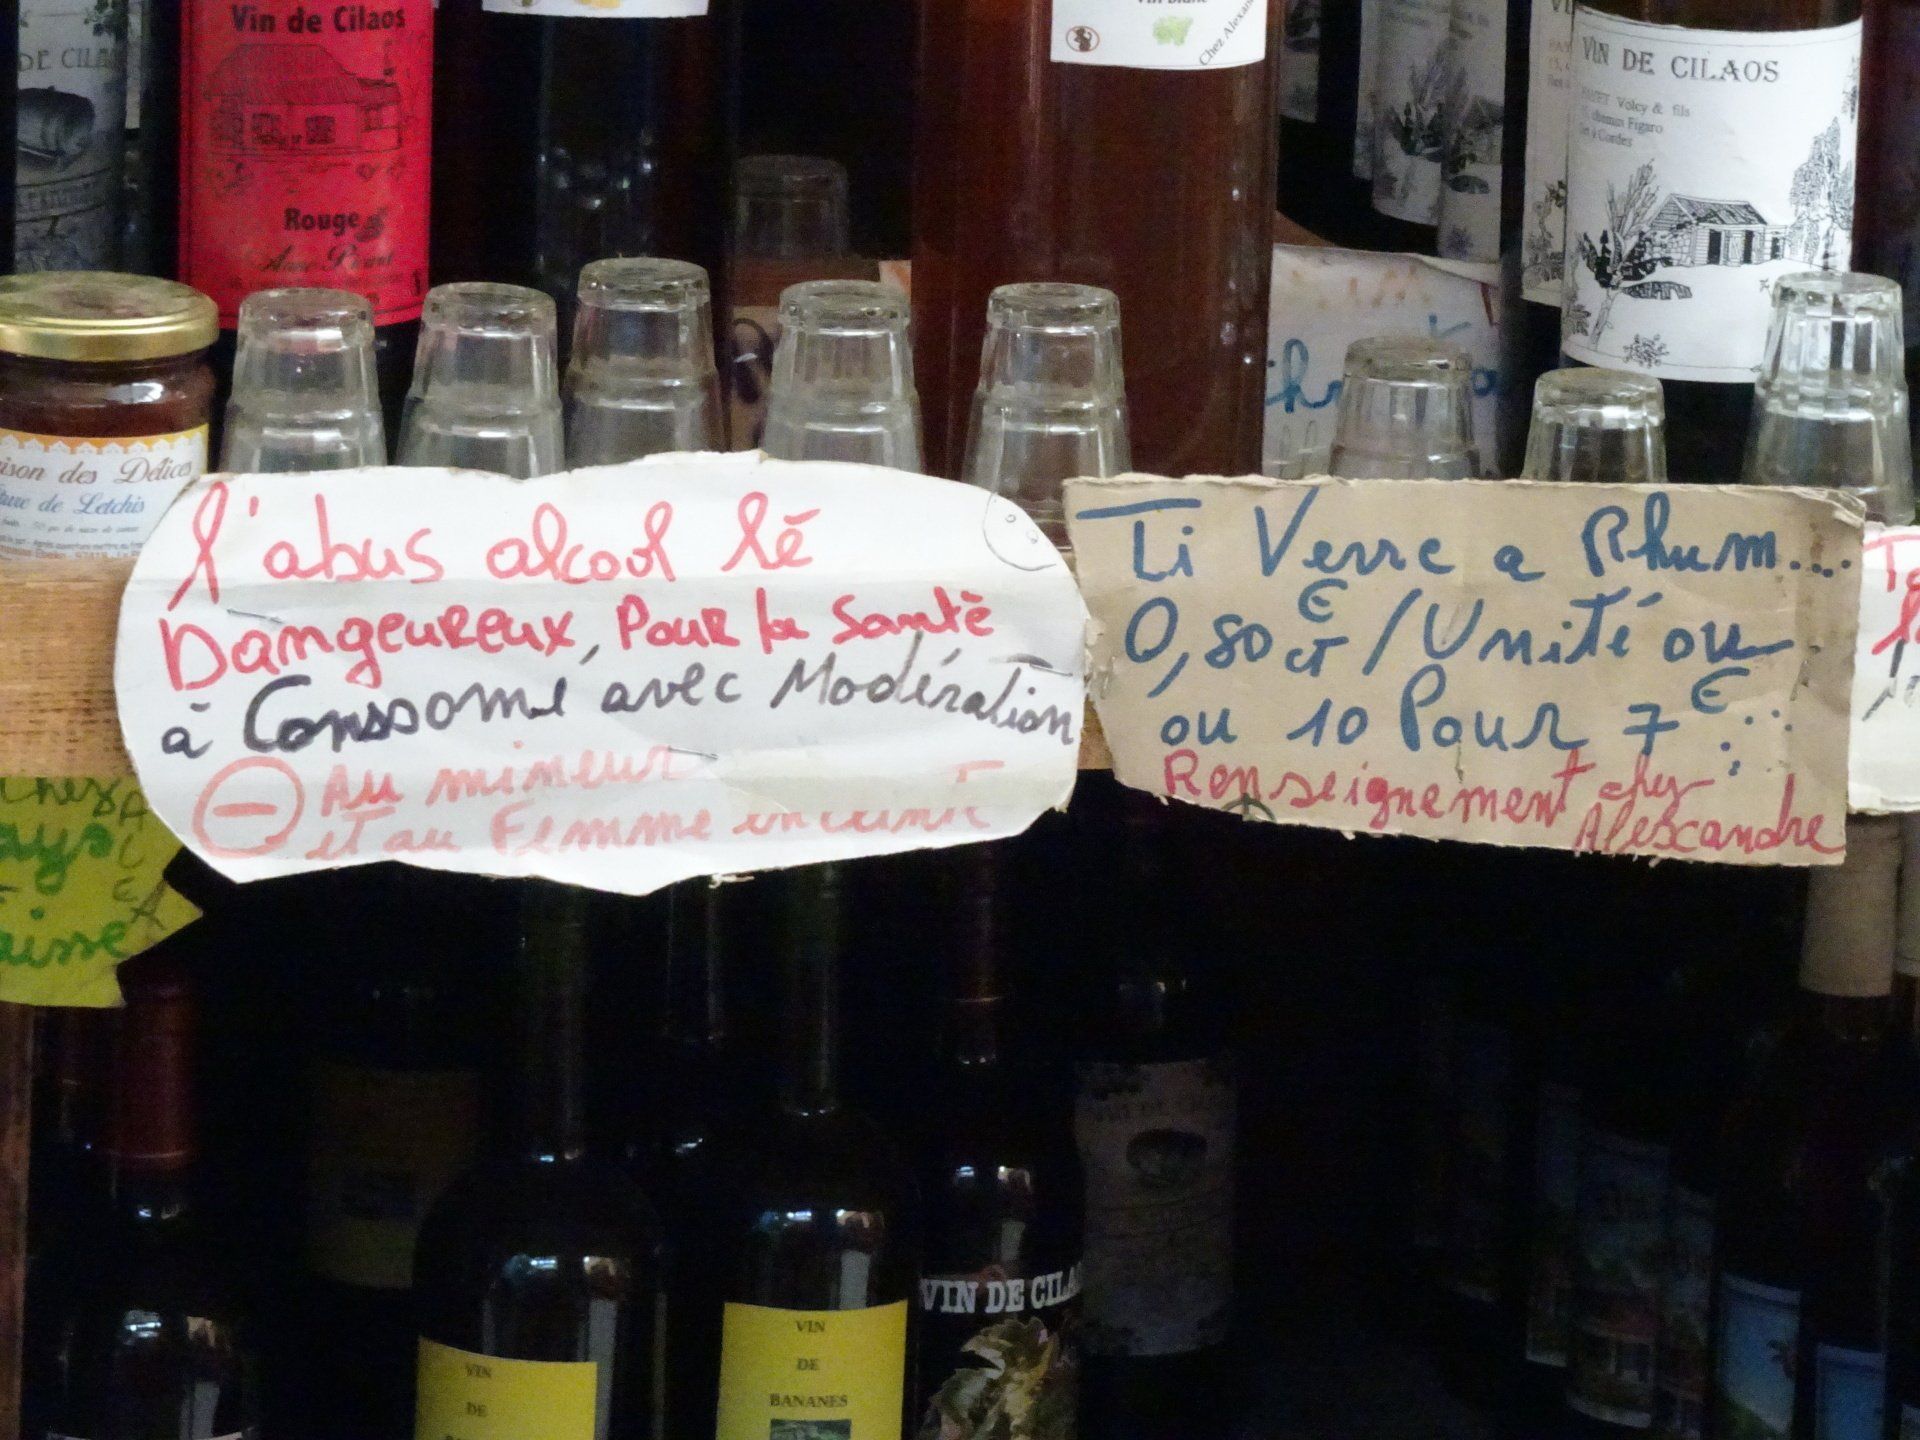 DE CILA
Vin de Cilaos
Rouge
Vin Blanc
Chez Alexan
VIN DE CILAOS
Volcy & fils
chemin Figaro
ison des Délices
de Letchis
l'abus alcool lé
Dangeureux, Pour la Santè
à Conssomé avec Modération
Au mineur
et au Femme enceinte
Ti Verre a Rhum....
0,80 € ct / Unité ou
ou 10 Pour 7 €...
Renseignement chez
Alexcandre
VIN DE CILA
VIN
DE
VIN
DE
BANANES